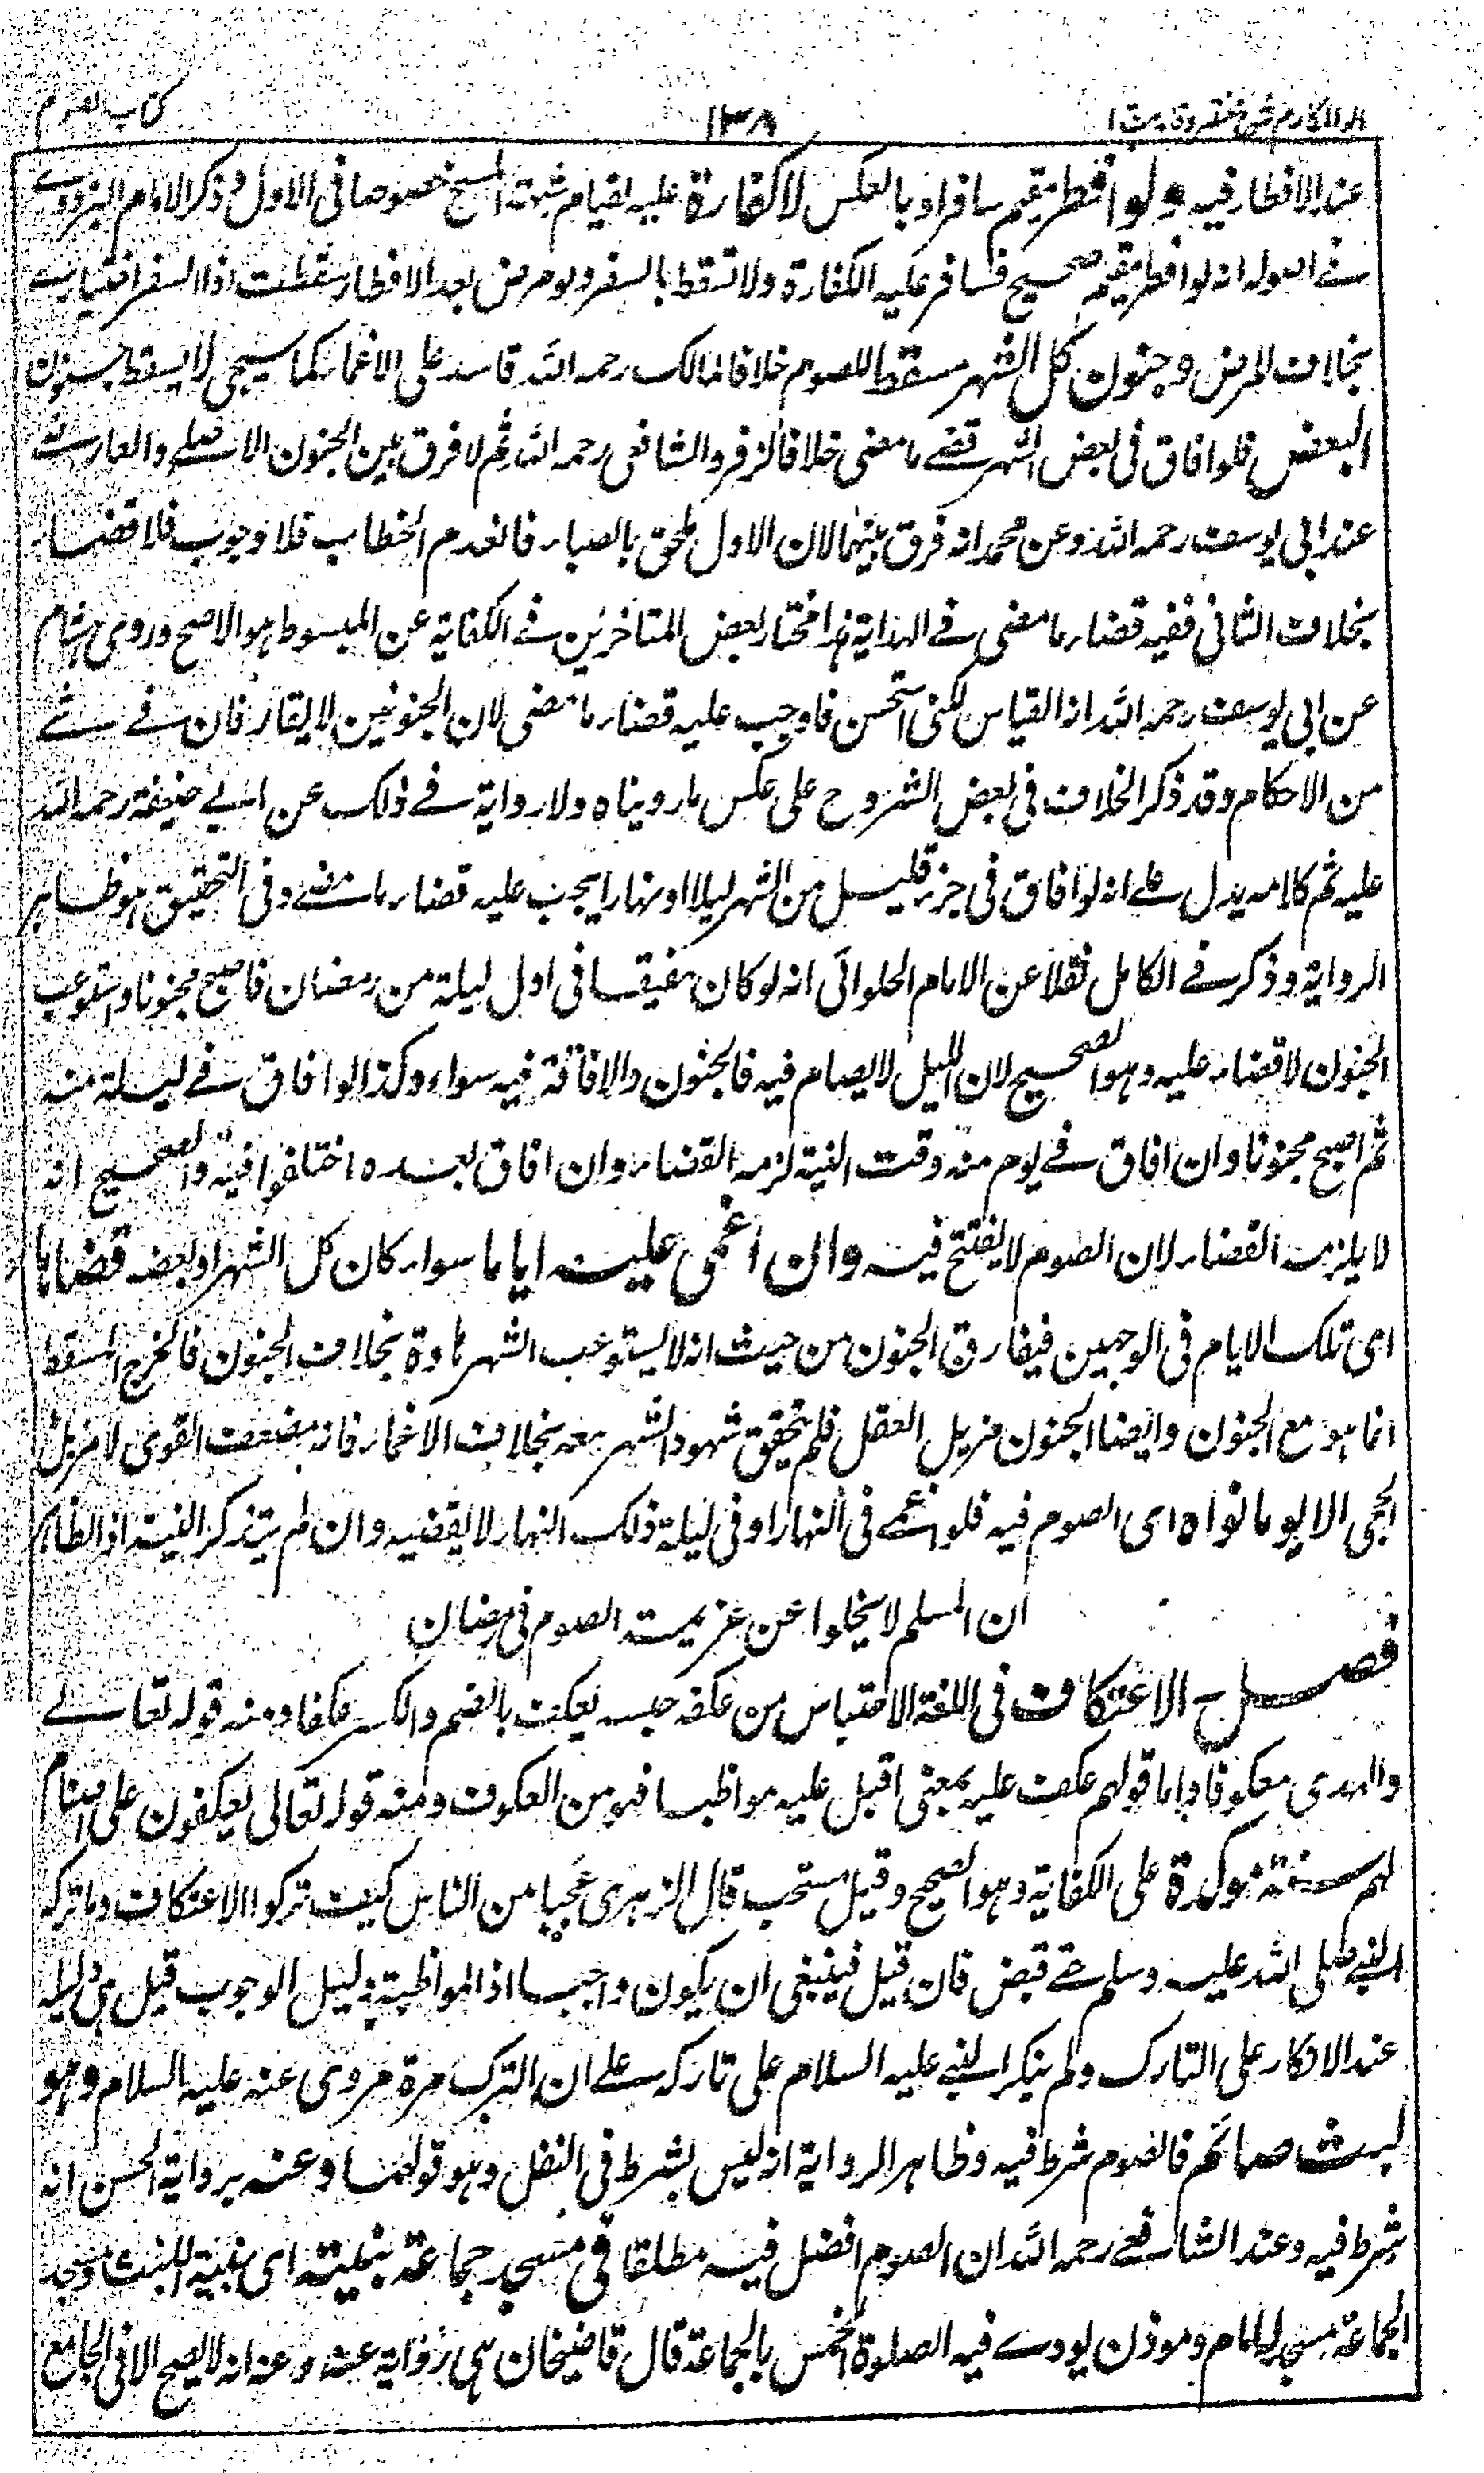 كتاب الصوم
١٣٨
عند الافطار فيه ولو افطر مقيم سافر او بالعكس لا كفارة عليه لقيام شبهة المبيح خصوصا فى الاول وذكر الامام البزدوى
فى اصوله انه لو افطر مقيم صحيح فسافر عليه الكفارة ولا تسقط بالسفر ولو مرض بعد الافطار سقطت اذ السفر اختيارى
بخلاف المرض وجنون كل الشهر مسقط للصوم خلافا لمالك رحمه الله قاسه على الاغماء كما سيجى لا يسقط جنون
البعض فلو افاق فى بعض الشهر قضى ما مضى خلافا لزفر والشافعى رحمه الله ثم لا فرق بين الجنون الاصلى والعارضى
عند ابى يوسف رحمه الله وعن محمد انه فرق بينهما لان الاول ملحق بالصباء فانعدم الخطاب فلا وجوب فلا قضاء
بخلاف الثانى ففيه قضاء ما مضى فى الهداية هذا مختار بعض المتاخرين فى الكفاية عن المبسوط هو الاصح وروى هشام
عن ابى يوسف رحمه الله انه القياس لكنى استحسن فاوجب عليه قضاء ما مضى لان الجنونين لا يفارقان فى شئ
من الاحكام وقد ذكر الخلاف فى بعض الشروح على عكس ما رويناه ولا رواية فى ذلك عن ابى حنيفة رحمه الله
عليه ثم كلامه يدل على انه لو افاق فى جزء قليل من الشهر ليلا او نهارا يجب عليه قضاء ما مضى وفى التحقيق هو ظاهر
الرواية وذكر فى الكامل نقلا عن الامام الحلوائى انه لو كان مفيقا فى اول ليلة من رمضان فاصبح مجنونا واستوعب
الجنون لا قضاء عليه وهو الصحيح لان الليل لا يصام فيه فالجنون والافاقة فيه سواء وكذا لو افاق فى ليلة منه
ثم اصبح مجنونا وان افاق فى يوم منه وقت النية لزمه القضاء وان افاق بعده اختلفوا فيه والصحيح انه
لا يلزمه القضاء لان الصوم لا يفتتح فيه وان اغمى عليه اياما سواء كان كل الشهر او بعضه قضاها
اى تلك الايام فى الوجهين فيفارق الجنون من حيث انه لا يستوعب الشهر عادة بخلاف الجنون فالحرج المسقط
انما هو مع الجنون وايضا الجنون مزيل العقل فلم يتحقق شهود الشهر معه بخلاف الاغماء فانه مضعف القوى لا مزيل
الحجى الا يوما نواه اى الصوم فيه فلو اغمى فى النهار او فى ليلة ذلك النهار لا يقضيه وان لم يتذكر النية اذ الظاهر
ان المسلم لا يخلوا عن عزيمت الصوم فى رمضان
فصل الاعتكاف فى اللغة الاحتباس من عكفه حبسه يعكف بالضم والكسر عكفا ومنه قوله تعالى
والهدى معكوفا واما قولهم عكف عليه بمعنى اقبل عليه مواظبا فهو من العكوف ومنه قوله تعالى يعكفون على اصنام
لهم سنة مؤكدة على الكفاية وهو الصحيح وقيل مستحب قال الزهرى عجبا من الناس كيف تركوا الاعتكاف وما تركه
النبى صلى الله عليه وسلم حتى قبض فان قيل فينبغى ان يكون واجبا اذ المواظبة دليل الوجوب قيل هى دليله
عند الانكار على التارك ولم ينكر النبى عليه السلام على تاركه على ان الترك مرة مروى عنه عليه السلام وهو
لبث صائم فالصوم شرط فيه وظاهر الرواية انه ليس بشرط فى النفل وهو قولهما وعنه برواية الحسن انه
شرط فيه وعند الشافعى رحمه الله ان الصوم افضل فيه مطلقا فى مسجد جماعة بنيته اى بنية اللبث ومسجد
الجماعة مسجد له امام وموذن يودى فيه الصلوة الخمس بالجماعة قال قاضيخان هى رواية عنه وعنه انه لا يصح الا فى الجامع